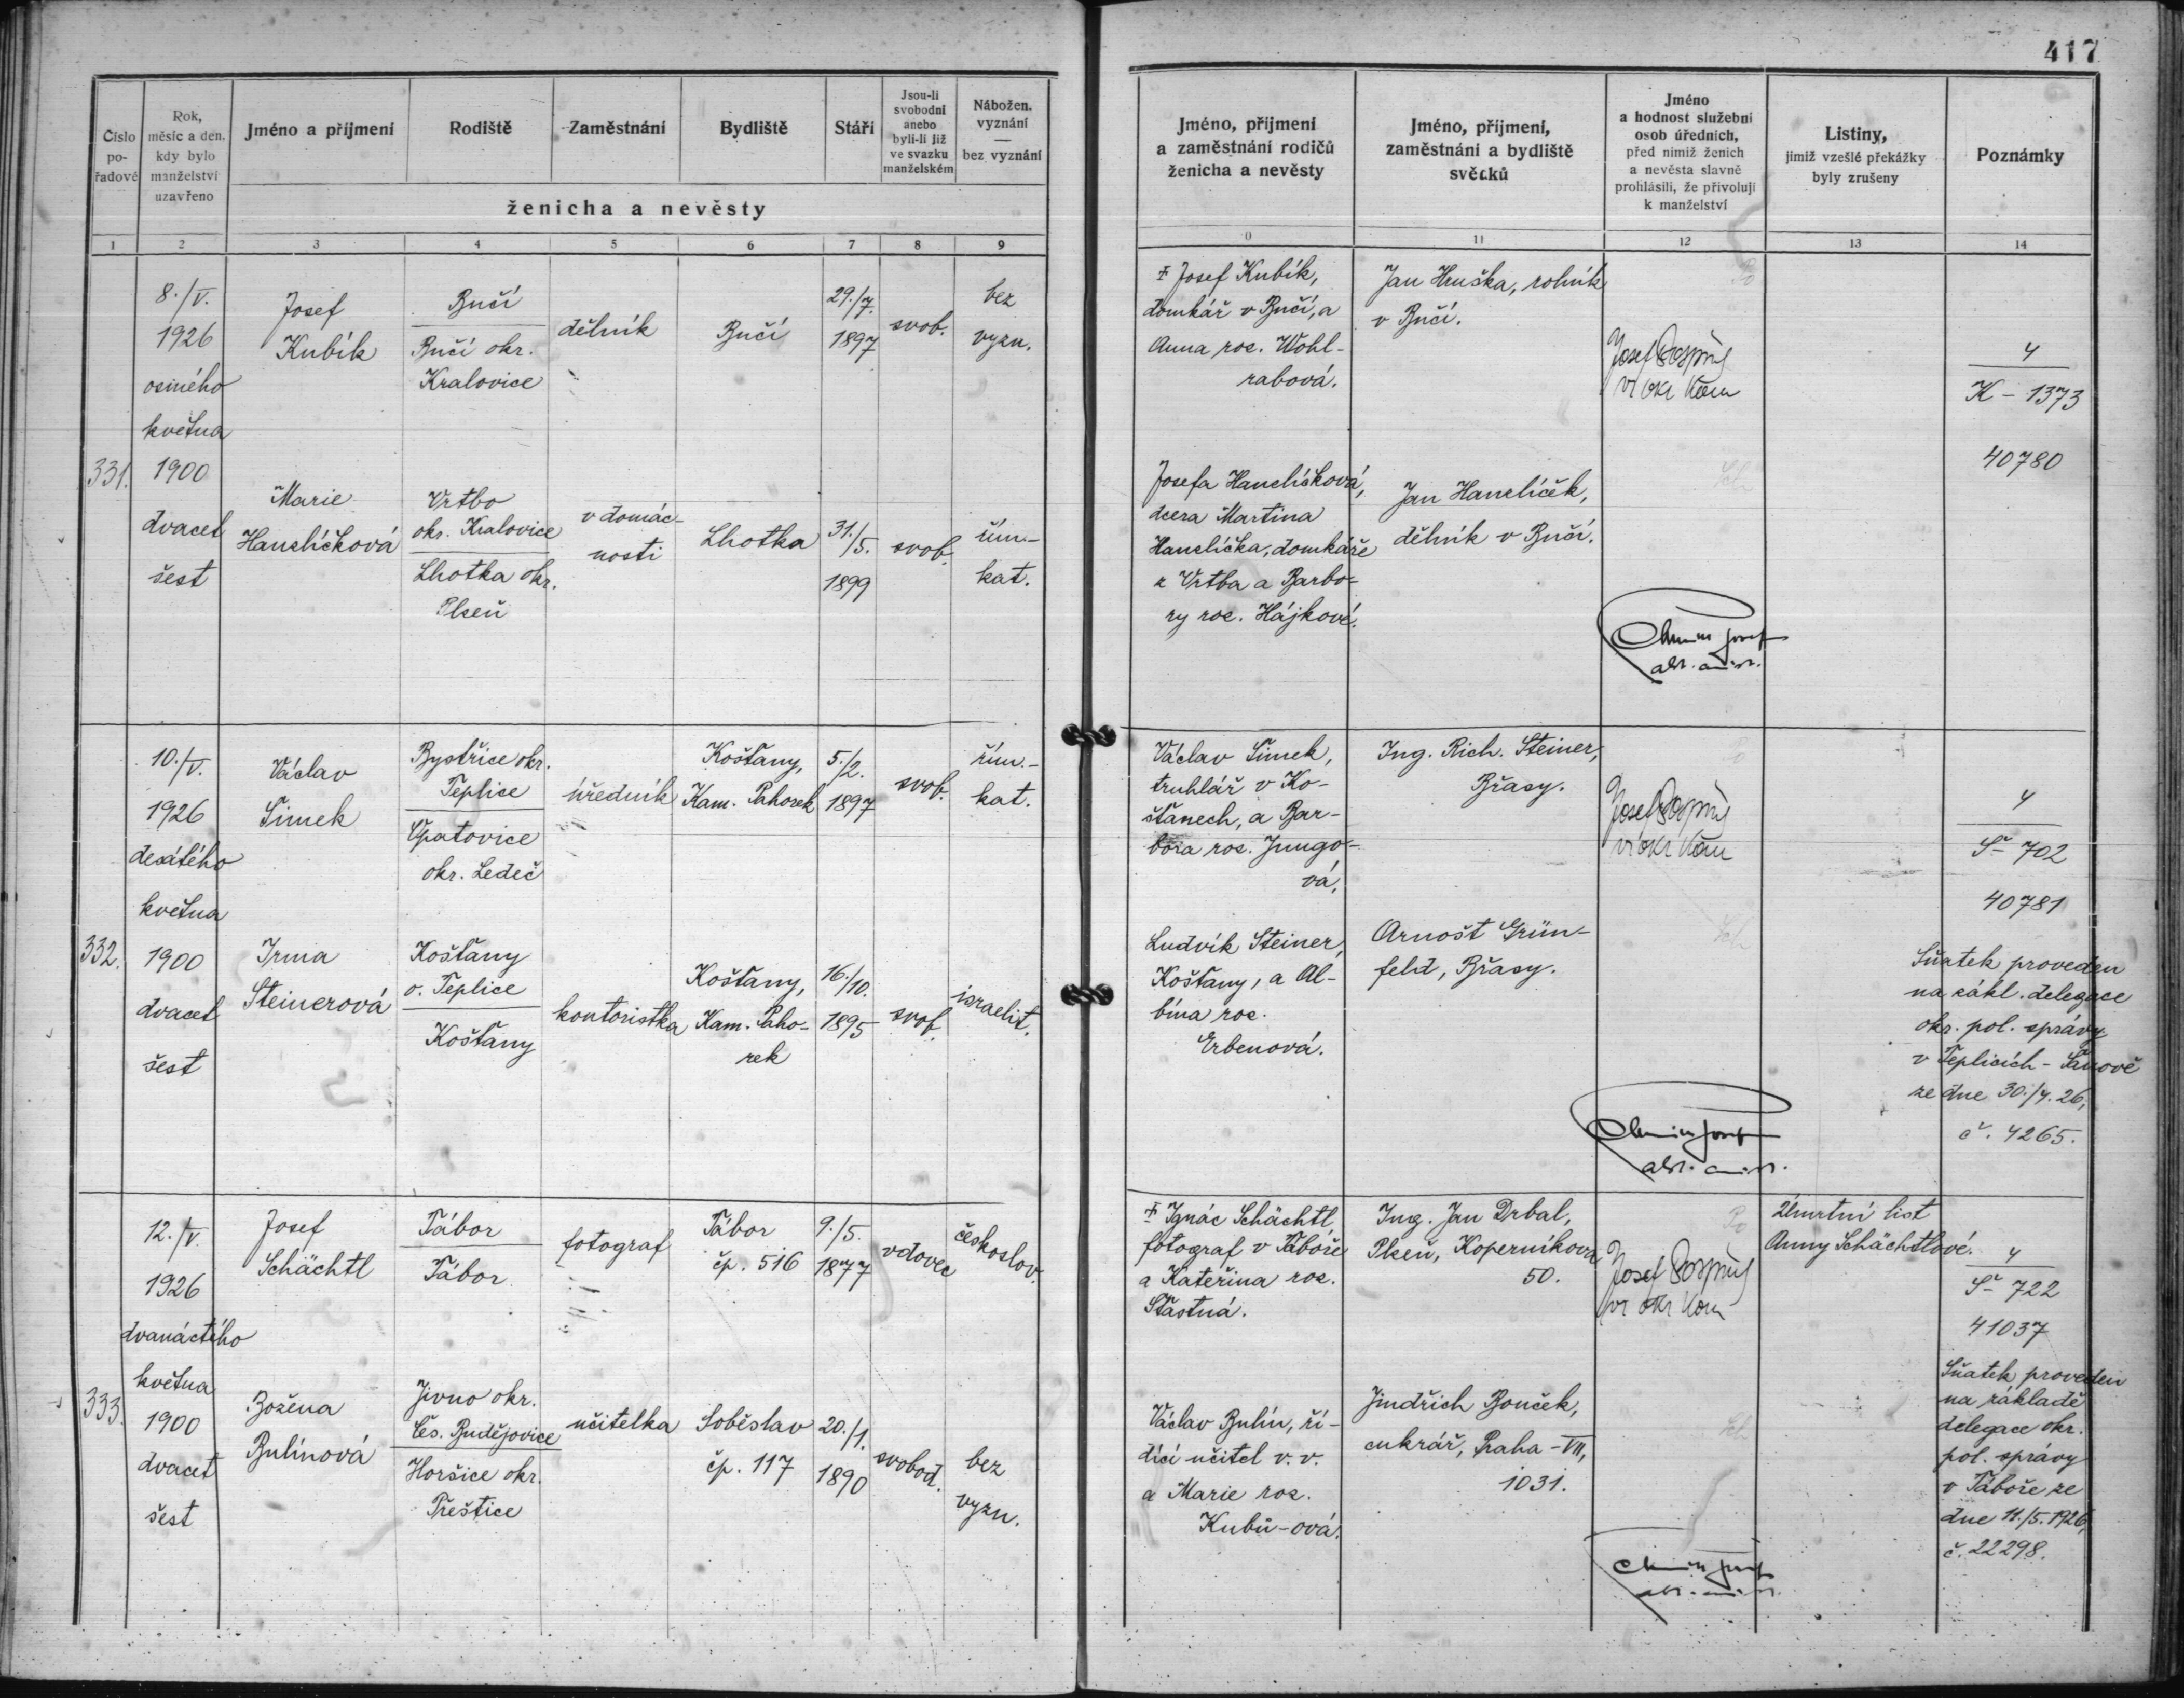 417
Číslo
po-
řadové
Rok,
měsíc a den,
kdy bylo
manželství
uzavřeno
Jméno a příjmení
Rodiště
Zaměstnání
Bydliště
Stáří
Jsou-li
svobodni
anebo
byli-li již
ve svazku
manželském
Nábožen.
vyznání
—
bez vyznání
ženicha a nevěsty
Jméno, příjmení
a zaměstnání rodičů
ženicha a nevěsty
Jméno, příjmení,
zaměstnání a bydliště
svědků
Jméno
a hodnost služební
osob úředních,
před nimiž ženich
a nevěsta slavně
prohlásili, že přivolují
k manželství
Listiny,
jimiž vzešlé překážky
byly zrušeny
Poznámky
1 2 3 4 5 6 7 8 9 0 11 12 13 14
331.
8./V.
1926
osmého
května
1900
dvacet
šest
Josef
Kubík
Bučí
Bučí okr.
Kralovice
dělník
Bučí
29./7.
1897
svob.
bez
vyzn.
Josef Kubík,
domkář v Bučí, a
Anna roz. Wohl-
rabová.
Jan Hruška, rolník
v Bučí.
Josef Pospíšil
4
K - 1373
40780
Marie
Hanzlíčková
Vrtbo
okr. Kralovice
Lhotka okr.
Plzeň
v domác-
nosti
Lhotka
31./5.
1899
svob.
řím.-
kat.
Josefa Hanzlíčková,
dcera Martina
Hanzlíčka, domkáře
z Vrtba a Barbo-
ry roz. Hájkové.
Jan Hanzlíček,
dělník v Bučí.
332.
10./V.
1926
desátého
května
1900
dvacet
šest
Václav
Šimek
Bystřice okr.
Teplice
Opatovice
okr. Ledeč
úředník
Košťany,
Kam. Pahorek
5./2.
1897
svob.
řím.-
kat.
Václav Šimek,
truhlář v Ko-
šťanech, a Bar-
bora roz. Jungo-
vá.
Ing. Rich. Steiner,
Břasy.
Josef Pospíšil
4
Š - 702
40781
Irma
Steinerová
Košťany
o. Teplice
Košťany
kontoristka
Košťany,
Kam. Paho-
rek
16./10.
1895
svob.
israelit.
Ludvík Steiner,
Košťany, a Al-
bína roz.
Erbenová.
Arnošt Grün-
feld, Břasy.
Sňatek proveden
na zákl. delegace
okr. pol. správy
v Teplicích - Šanově
ze dne 30./4. 26,
č. 4265.
333.
12./V.
1926
dvanáctého
května
1900
dvacet
šest
Josef
Schächtl
Tábor
Tábor
fotograf
Tábor
čp. 516
9./5.
1877
vdovec
českoslov.
Ignác Schächtl,
fotograf v Táboře
a Kateřina roz.
Šťastná.
Ing. Jan Drbal,
Plzeň, Koperníkova
50.
Josef Pospíšil
Úmrtní list
Anny Schächtlové.
4
Š - 722
41037
Božena
Bulínová
Jivno okr.
Čes. Budějovice
Horšice okr.
Přeštice
učitelka
Soběslav
čp. 117
20./1.
1890
svobod.
bez
vyzn.
Václav Bulín, ří-
dící učitel v. v.
a Marie roz.
Kubů-ová.
Jindřich Bouček,
cukrář, Praha - VII,
1031.
Sňatek proveden
na základě
delegace okr.
pol. správy
v Táboře ze
dne 11./5. 1926,
č. 22298.